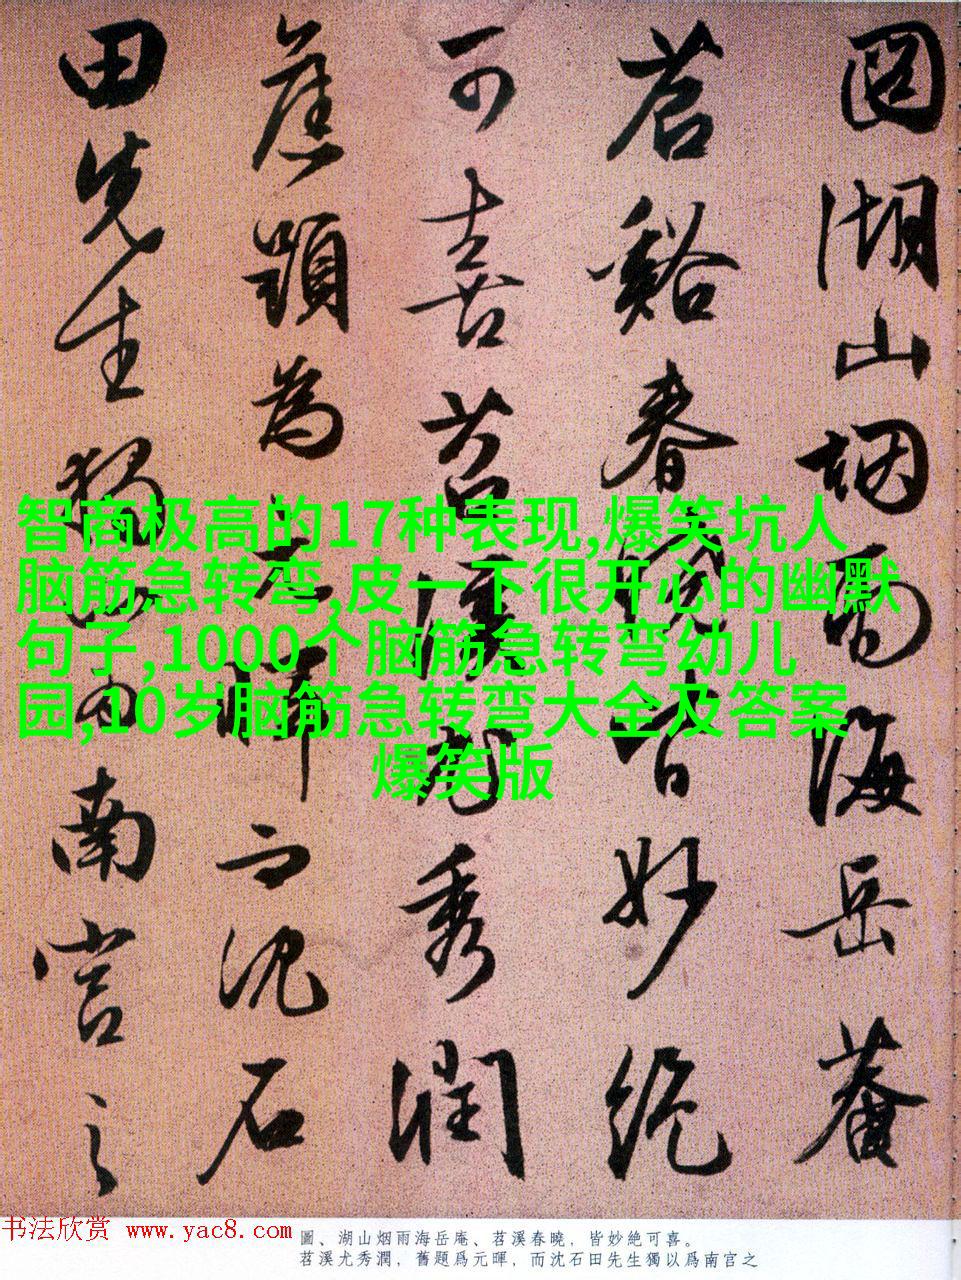 圖湖山烟雨海岳菴
苕谿春曉皆妙絕
可喜苕溪尤秀潤
舊題為元暉而沈石
田先生獨以為南宮之
智商极高的17种表现,爆笑坑人
脑筋急转弯,皮一下很开心的幽默
句子,1000个脑筋急转弯幼儿
园,10岁脑筋急转弯大全及答案
爆笑版
书法欣赏 www.yac8.com
圖、湖山烟雨海岳庵、苕溪春曉，皆妙絶可喜。
苕溪尤秀潤，舊題爲元暉，而沈石田先生獨以爲南宫之